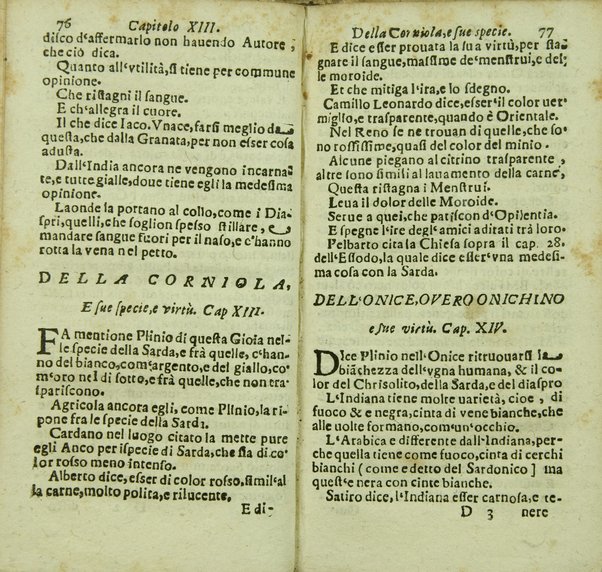 76 Capitolo XIII.
disco d'affermarlo non hauendo Autore,
che ciò dica.
Quanto all'vtilità, si tiene per commune
opinione.
Che ristagni il sangue.
E ch'allegra il cuore.
Il che dice Iaco. Vnace, farsi meglio da
questa, che dalla Granata, per non esser cosa
adusta.
Dall'India ancora ne vengono incarna
te, e tutte gialle, doue tiene egli la medesima
opinione.
Laonde la portano al collo, come i Dia-
spri, quelli, che soglion spesso stillare, e
mandare sangue fuori per il naso, e c'hanno
rotta la vena nel petto.
DELLA CORNIOLA,
E sue specie, e virtù. Cap XIII.
FA mentione Plinio di questa Gioia nel-
le specie della Sarda, e frà quelle, c'han-
no del bianco, com'argento, e del giallo, co-
m'oro nel di sotto, e frà quelle, che non tra-
spariscono.
Agricola ancora egli, come Plinio, la ri-
pone fra le specie della Sarda.
Cardano nel luogo citato la mette pure
egli Anco per ispecie di Sarda, che sia di co-
lor rosso meno intenso.
Alberto dice, esser di color rosso, simil'al
la carne, molto polita, e rilucente.
E di-
Della Corniola, e sue specie. 77
E dice esser prouata la sua virtù, per sta-
gnare il sangue, massime de'menstrui, e del-
le moroide.
Et che mitiga l'ira, e lo sdegno.
Camillo Leonardo dice, esser'il color uer
miglio, e trasparente, quando è Orientale.
Nel Reno se ne trouan di quelle, che so-
no rossissime, quasi del color del minio.
Alcune piegano al citrino trasparente,
altre sono simili al lauamento della carne,
Questa ristagna i Menstrui.
Leua il dolor delle Moroide.
Serue a quei, che patiscon d'Opilentia.
E spegne l'ire degl'amici adirati trà loro
Pelbarto cita la Chiesa sopra il cap. 28.
dell'Essodo, la quale dice esser'vna medesi-
ma cosa con la Sarda.
DELL'ONICE, OVERO ONICHINO
e sue virtù. Cap. XIV.
DIce Plinio nell'Onice ritruouarsi la
biãchezza dell'vgna humana, & il co-
lor del Chrisolito, della Sarda, e del diaspro
L'Indiana tiene molte uarietà, cioe, di
fuoco & e negra, cinta di vene bianche, che
alle uolte formano, com'un'occhio.
L'Arabica e differente dall'Indiana, per-
che quella tiene come fuoco, cinta di cerchi
bianchi (come e detto del Sardonico] ma
quest'e nera con cinte bianche.
Satiro dice, l'Indiana esser carnosa, e te-
D 3 nere